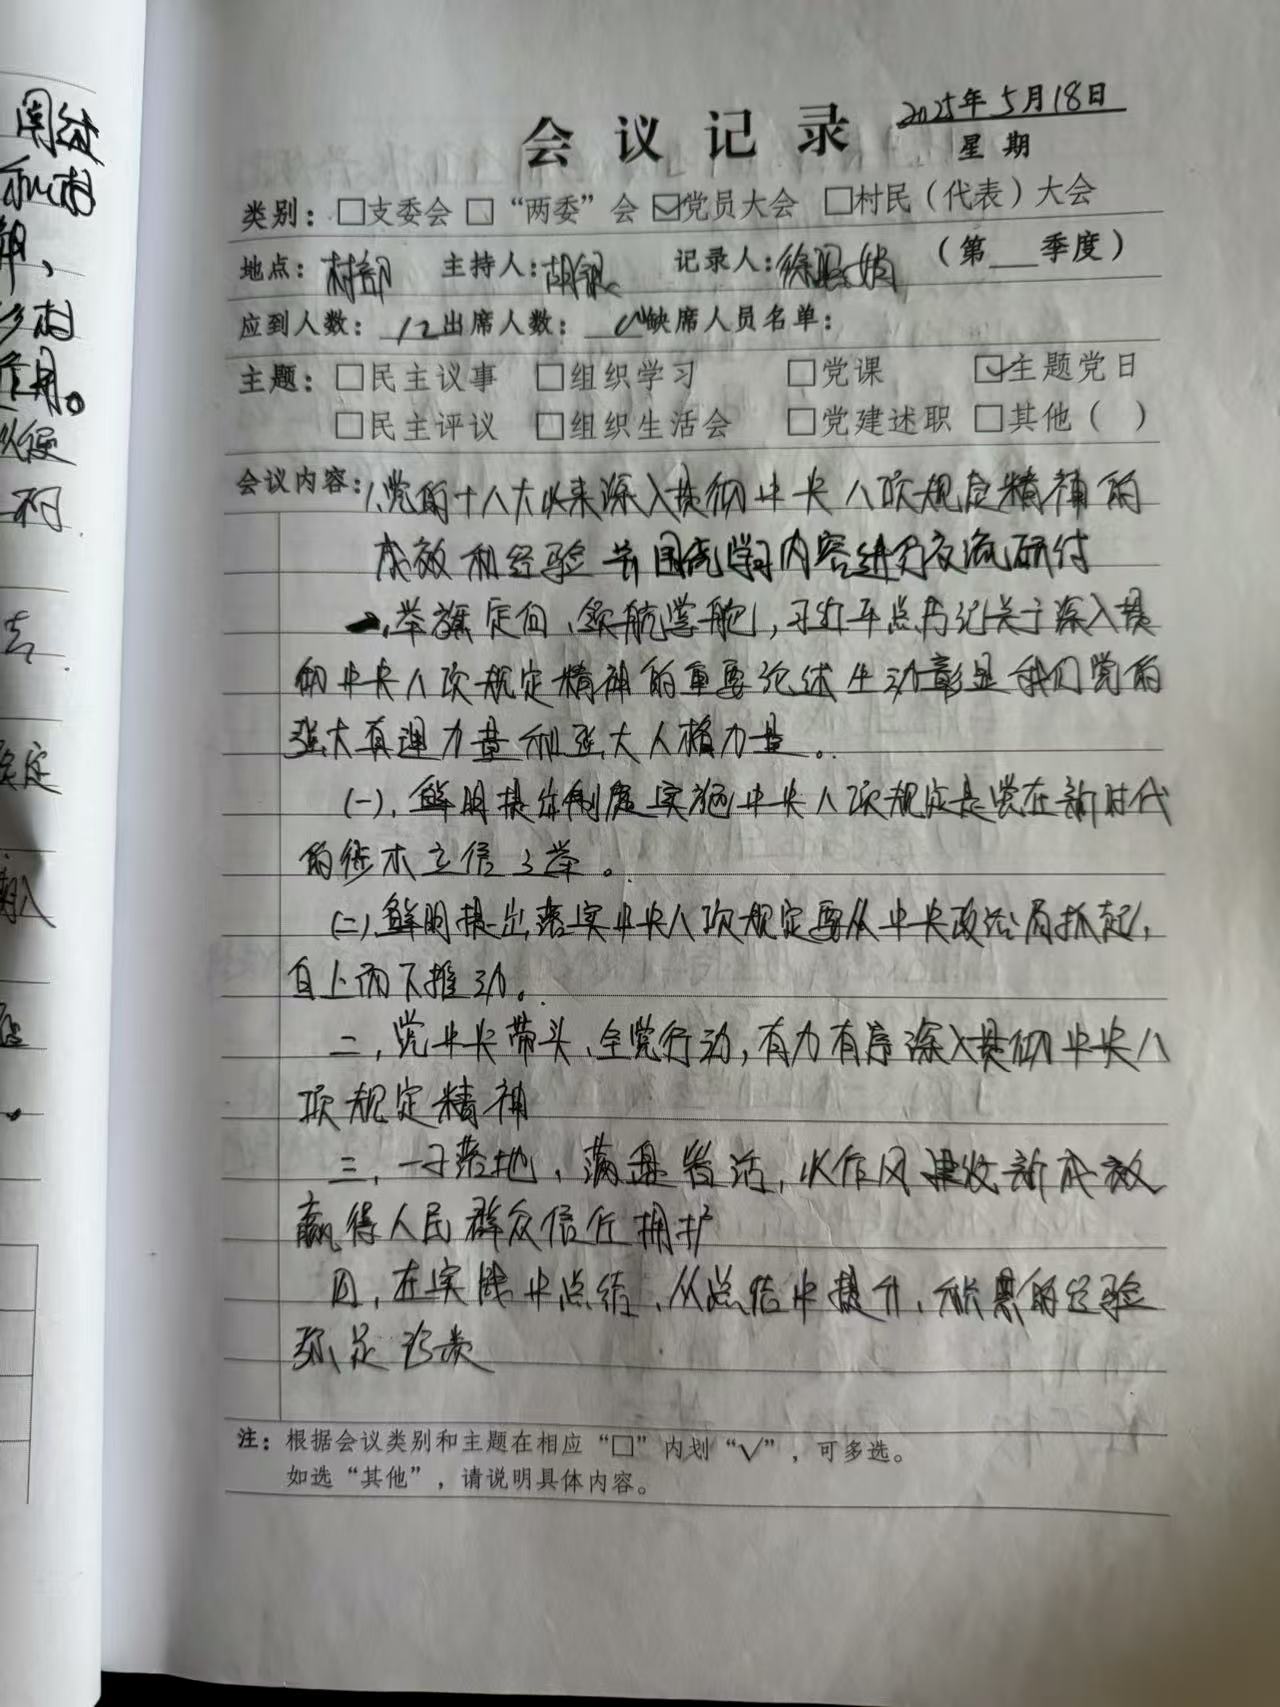 会议记录
2025年5月18日
星期
类别：□支委会 □“两委”会 ☑党员大会 □村民（代表）大会
地点：村部 主持人：胡 记录人：徐 娟 （第 季度）
应到人数：12 出席人数： 缺席人员名单：
主题：□民主议事 □组织学习 □党课 ☑主题党日
□民主评议 □组织生活会 □党建述职 □其他（ ）
会议内容：1、党的十八大以来深入贯彻中央八项规定精神的
成效和经验 并围绕学习内容进行交流研讨
一、举旗定向、领航掌舵，习近平总书记关于深入贯
彻中央八项规定精神的重要论述生动彰显我们党的
强大真理力量和强大人格力量。
（一）、鲜明提 制度 实施中央八项规定是党在新时代
的徙木立信之举。
（二）、鲜明提出落实中央八项规定要从中央政治局抓起，
自上而下推动。
二，党中央带头、全党行动，有力有序深入贯彻中央八
项规定精神
三，一子落地、满盘皆活，以作风建设新成效
赢得人民群众信任拥护
四，在实践中总结、从总结中提升，积累的经验
弥足珍贵
注：根据会议类别和主题在相应“□”内划“√”，可多选。
如选“其他”，请说明具体内容。
周
和村
村
作用。
村
去
实定